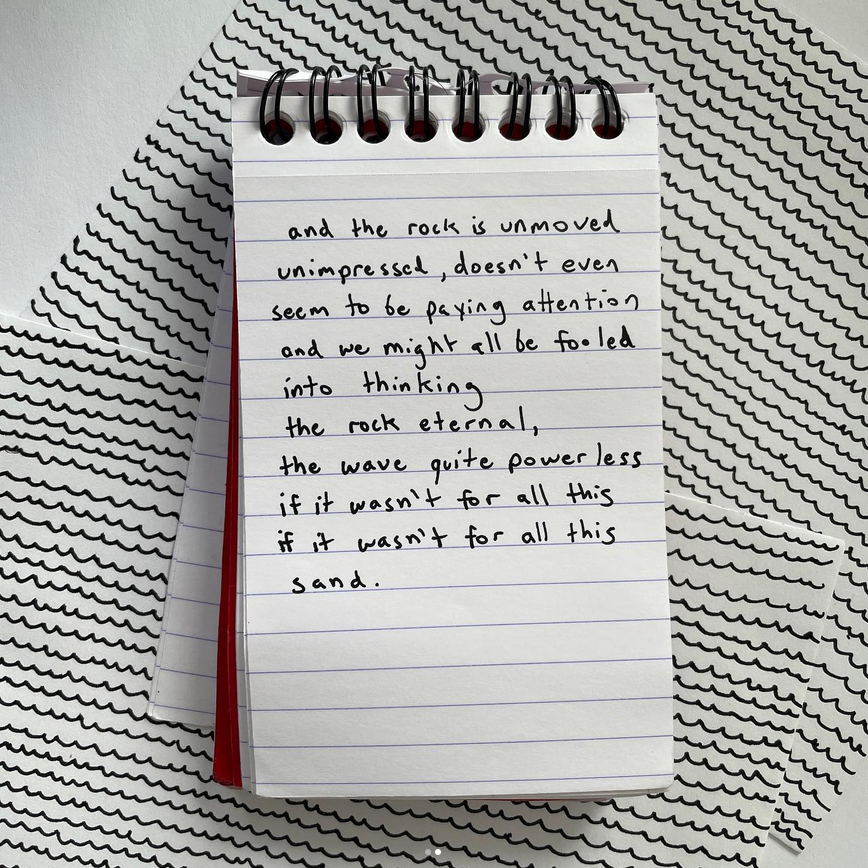 and the rock is unmoved
unimpressed, doesn't even
seem to be paying attention
and we might all be fooled
into thinking
the rock eternal,
the wave quite powerless
if it wasn't for all this
if it wasn't for all this
sand.